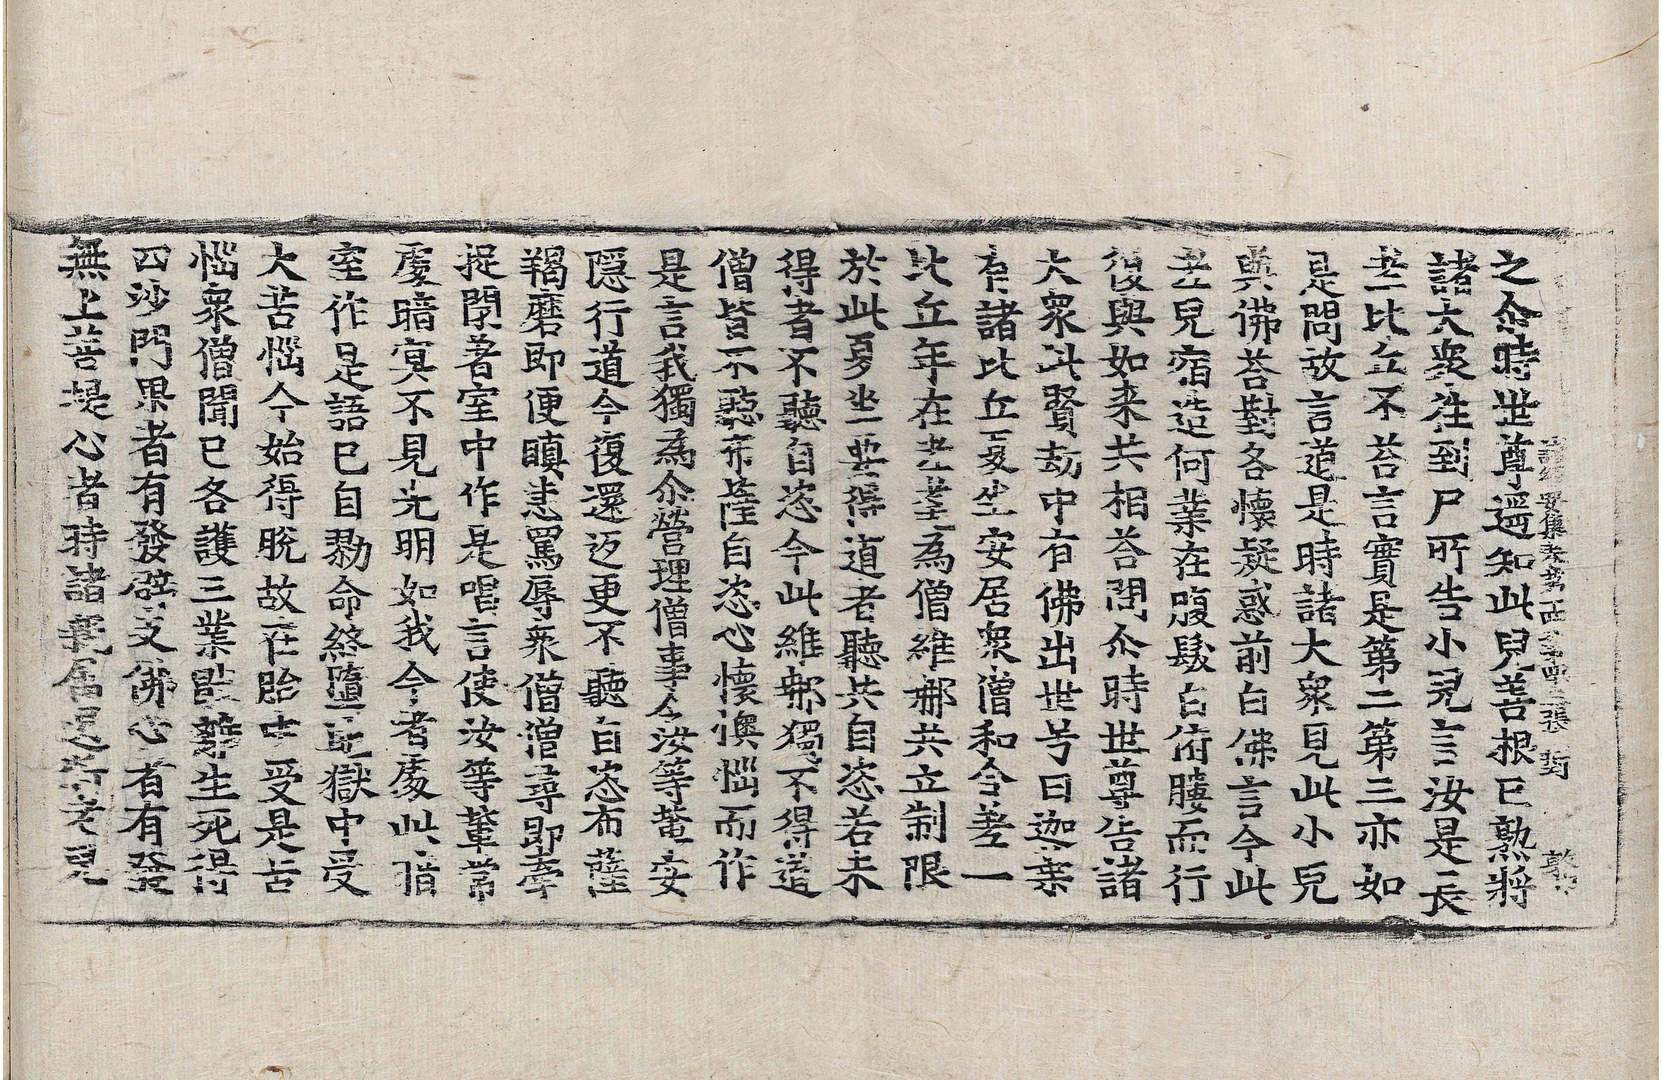 之尒時世尊遥知此兒善根已熟將
諸大衆往到尸所告小兒言汝是長
老比丘不荅言實是第二第三亦如
是問故言道是時諸大衆見此小兒
與佛荅對各懷疑惑前白佛言今此
老兒宿造何業在腹髮白俯僂而行
復與如来共相荅問尒時世尊告諸
大衆此賢劫中有佛出世号曰迦葉
有諸比丘夏坐安居衆僧和合差一
比丘年在老耄為僧維那共立制限
於此夏坐要得道者聽共自恣若未
得者不聽自恣今此維那獨不得道
僧皆不聽布薩自恣心懷懊惱而作
是言我獨為尒營理僧事令汝等輩安
隱行道今復還返更不聽自恣布薩
羯磨即便瞋恚罵辱衆僧僧尋即牽
捉閉著室中作是唱言使汝等輩常
處暗冥不見光明如我今者處此暗
室作是語已自勠命終墮地獄中受
大苦惱今始得脫故在胎中受是苦
惱衆僧聞已各護三業猒離生死得
四沙門果者有發辟支佛心者有發
無上菩提心者時諸親屬還將老兒